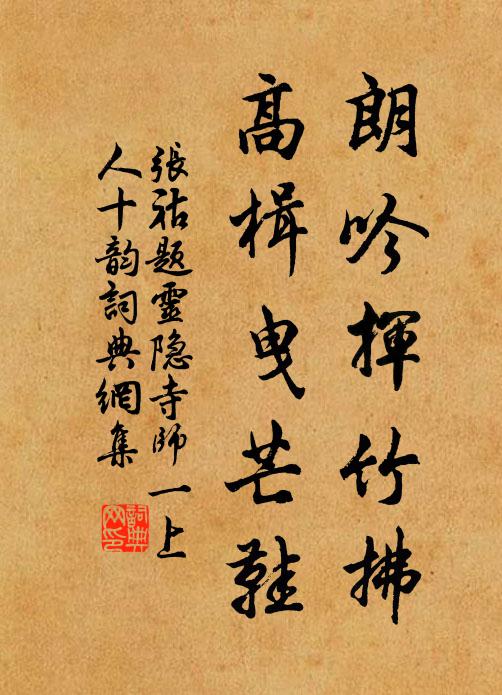 朗吟揮竹拂
高楫曳芒鞋
張祜題靈隐寺師一上
人十韵詞典網集
詞典網印